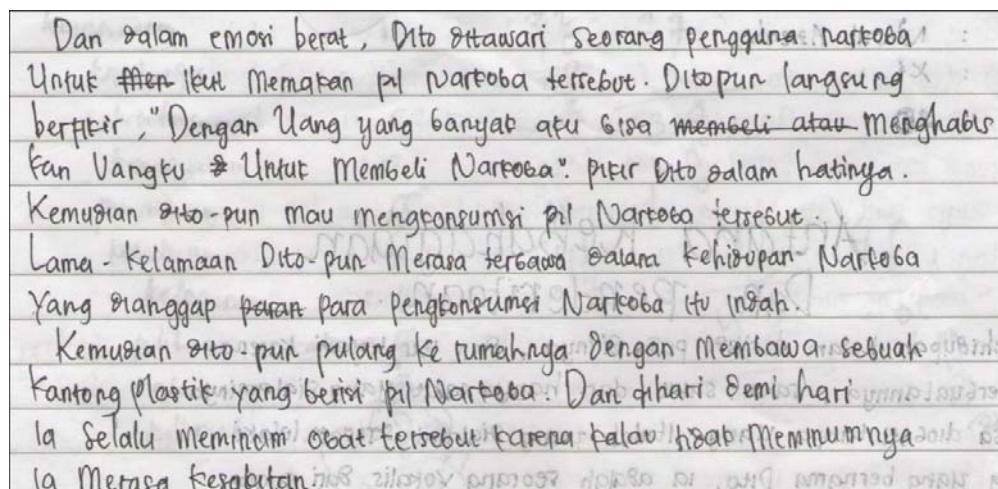 Dan dalam emosi berat, Dito ditawari seorang pengguna narkoba
Untuk ikut Memakan pil Narkoba tersebut. Ditopun langsung
berfikir, "Dengan Uang yang banyak aku bisa membeli atau Menghabis
kan Uangku Untuk Membeli Narkoba". pikir Dito dalam hatinya.
Kemudian dito-pun mau mengkonsumsi pil Narkoba tersebut.
Lama-Kelamaan Dito-pun Merasa terbawa dalam Kehidupan Narkoba
Yang dianggap para Pengkonsumsi Narkoba itu indah.
Kemudian dito-pun pulang ke rumahnya dengan Membawa sebuah
Kantong Plastik yang berisi pil Narkoba. Dan dihari demi hari
Ia Selalu Meminum obat tersebut karena kalau tidak Meminumnya
Ia Merasa Kesakitan.